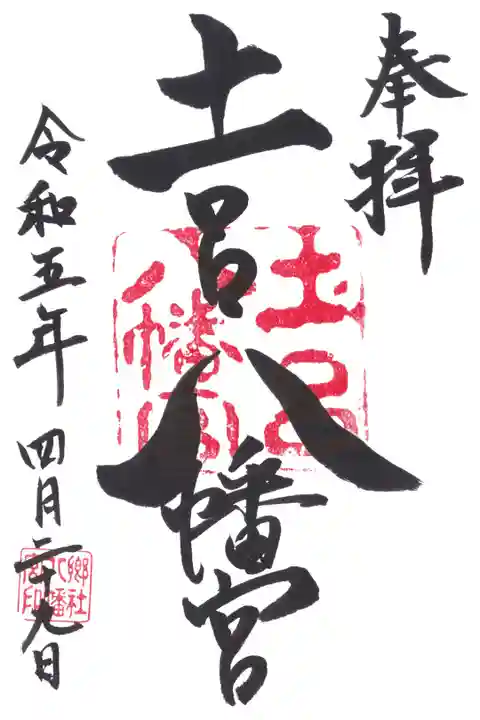 奉拝
土呂八幡宮
土呂八幡宮
令和五年四月二十九日
郷社八幡宮印